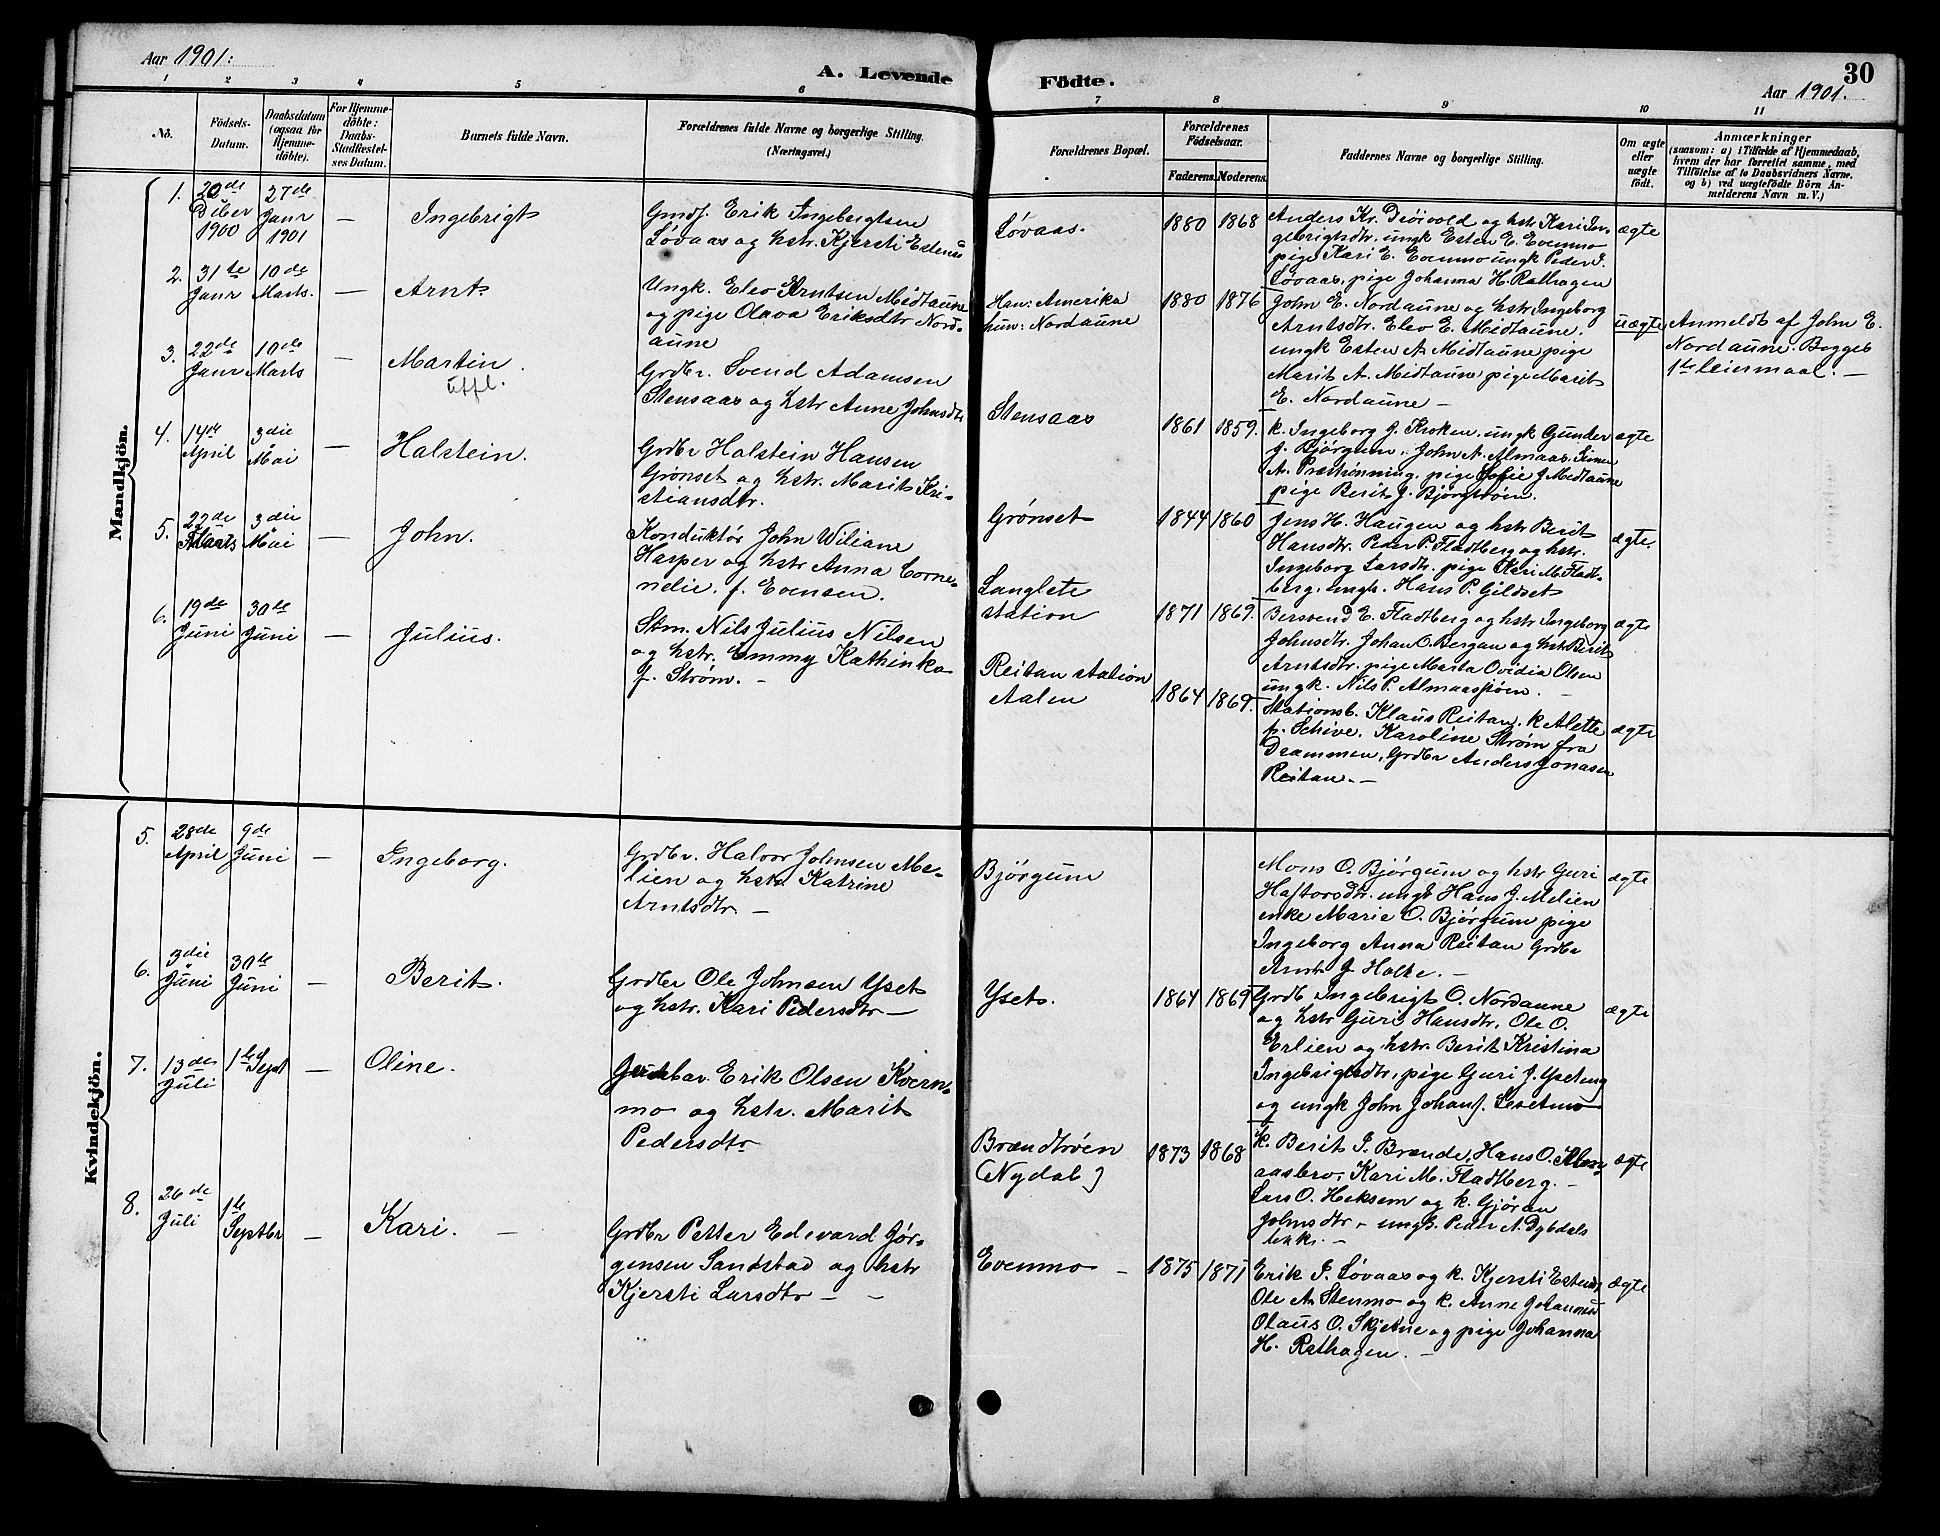 Aar 1901:
A. Levende
Födte.
30
Aar 1901.
1 2 3 4 5 6 7 8 9 10 11
No.
Födsels-
Datum.
Daabsdatum
(ogsaa for
Hjemme-
döbte).
For Hjemme-
döbte:
Daabs-
Stadfæstel-
ses Datum.
Barnets fulde Navn.
Forældrenes fulde Navne og borgerlige Stilling.
(Næringsvei.)
Forældrenes Bopæl.
Forældrenes
Födselsaar.
Faderens. Moderens.
Faddernes Navne og borgerlige Stilling.
Om ægte
eller
uægte
födt.
Anmærkninger
(saasom: a) i Tilfælde af Hjemmedaab,
hvem der har forrettet samme, med
Tilföielse af to Daabsvidners Navne,
og b) ved uægtefödte Börn An-
melderens Navn m. V.)
Mandkjön.
1.
20de
Dcber
1900
27de
Janr
1901
—
Ingebrigt
Gmdf. Erik Ingebrigtsen
Løvaas og hstr Kjersti Estensd
Løvaas.
1880 1868
Anders Kr. Drøivold og hstr Kari In-
gebrigtsdtr. ungk Esten E. Evenmo
pige Kari E. Evenmo ungk Peder I.
Løvaas, pige Johanna H. Rathagen
ægte
2.
31te
Janr
10de
Marts.
—
Arnt.
Ungk. Eleo Arntsen Midtaune
og pige Olava Eriksdtr Nord-
aune
Han: Amerika
hun: Nordaune
1880 1876
John E. Nordaune og hstr Ingeborg
Arntsdtr. Eleo E. Midtaune.
ungk Esten A. Midtaune pige
Marit A. Midtaune, pige Marit
E. Nordaune —
uægte
Anmeldt af John E.
Nordaune. Begges
1te leiermaal. —
3.
22de
Janr
10de
Marts
—
Martin.
uffl.
Grdbr. Svend Adamsen
Stensaas og hstr Anne Johnsdtr
Stensaas
1861 1859.
k. Ingeborg J. Kroken, ungk Gunder
J. Bjørgum. John A. Almaas,
A. Præsthønning, pige Sofie J Midtaune
pige Berit J. Bjørgtrøen.
ægte
4.
14de
April
3die
Mai
—
Halstein.
Grdbr Halstein Hansen
Grønset og hstr. Marit Kri-
stiansdtr.
Grønset
1844 1860
Jens H. Haugen og hstr Berit
Hansdtr. Peder P. Fladberg og hstr.
Ingeborg Larsdtr. pige Kari M. Fladt-
berg, ungk. Hans P. Gildset
ægte.
5.
22de
Marts
3die
Mai
—
John.
Konduktør John Wiliane
Harper og hstr Anna Corne-
nelie. f. Evensen.
Langlete
station
1871 1869.
Bersvend E. Fladtberg og hstr Ingeborg
Johnsdtr. Johan O. Bergan og hstr Berit
Arntsdtr. pige Marta Ovidia Olsen
ungk. Nils P. Almaastrøen. —
ægte
6.
19de
Juni
30te
Juni
—
Julius.
Stm. Nils Julius Nilsen
og hstr. Emmy Kathinka
f. Strøm. —
Reitan station
Aalen
1864 1869.
Stationsb. Klaus Reitan. k Alette
f. Schive. Karoline Strøm fra
Drammen, Grdbr Anders Jonasen
Reitan. —
ægte
Kvindekjön.
5.
28de
April
9de
Juni
—
Ingeborg.
Grdbr. Halvor Johnsen Me-
lien og hstr Katrine
Arntsdtr. —
Bjørgum
Mons O. Bjørgum og hstr Guri
Haftorsdtr. ungk Hans J. Melien
enke Marie O. Bjørgum pige
Ingeborg Anna Reitan Grdbr
Arnt J Holte. —
ægte
6.
3die
Juni
30te
Juni
—
Berit.
Grdbr Ole Johnsen Yset
og hstr. Kari Pedersdtr —
Yset.
1864 1869
Grdb Ingebrigt O. Nordaune
og hstr Guri Hansdtr. Ole O.
Erlien og hstr. Berit Kristina
Ingebrigtsdtr, pige Guri J. Yseteng
og ungk John Johansf. Lesetmo
ægte
7.
13de
Juli
1te Sept
—
Oline.
Erik Olsen Kvern-
mo og hstr. Marit
Pedersdtr
Brændtrøen
(Nydal)
1873 1868
k. Berit I. Brænde, Hans O.
aasbro, Kari M. Fladtberg. —
Lars O. Heksem og k. Gjøran
Johnsdtr — ungk. Peder A. Dybdals
bekk. —
ægte
8.
26de
Juli
1te
Septbr
—
Kari. —
Grdbr Petter Edevard Jør-
gensen Sandstad og hstr
Kjersti Larsdtr — —
Evenmo —
1875 1871
Erik I. Løvaas og k. Kjersti Estensd
Ole A. Stenmo og k. Anne Johannesd
Olaus O. Skjetne og pige Johanna
H. Rathagen. —
ægte